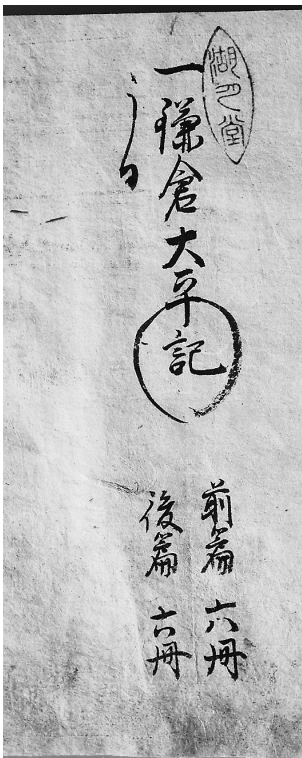 湖月堂
一鎌倉大平記
前篇 六冊
後篇 六冊